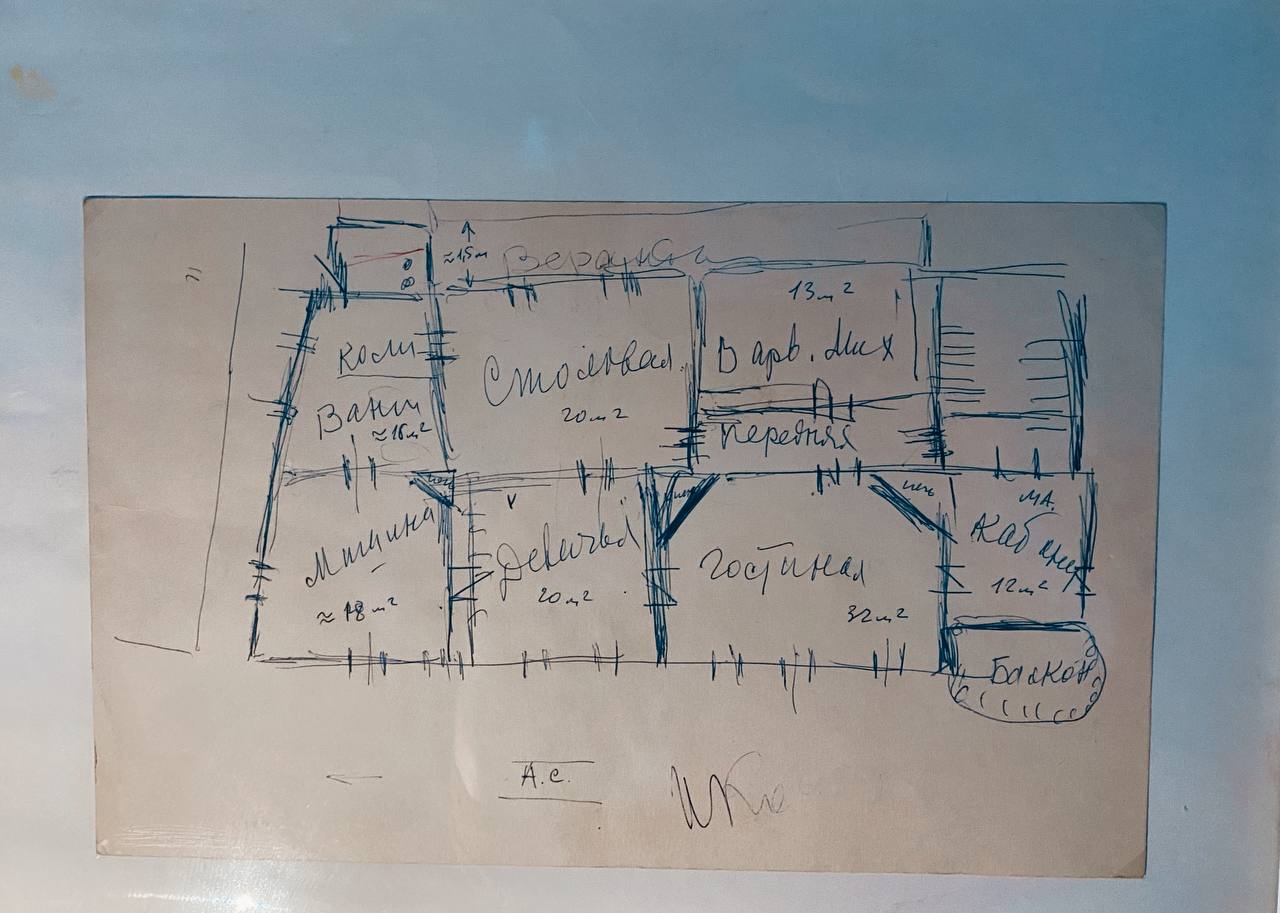 ≈1,5м
Веранда
13м²
Коли
Столовая
Варв. Мих
Вани
≈16м²
20м²
передняя
печь
печь
печь
МА.
Мишина
Девичья
Гостиная
Кабинет
≈18м²
20м²
32м²
12м²
Балкон
А.С.